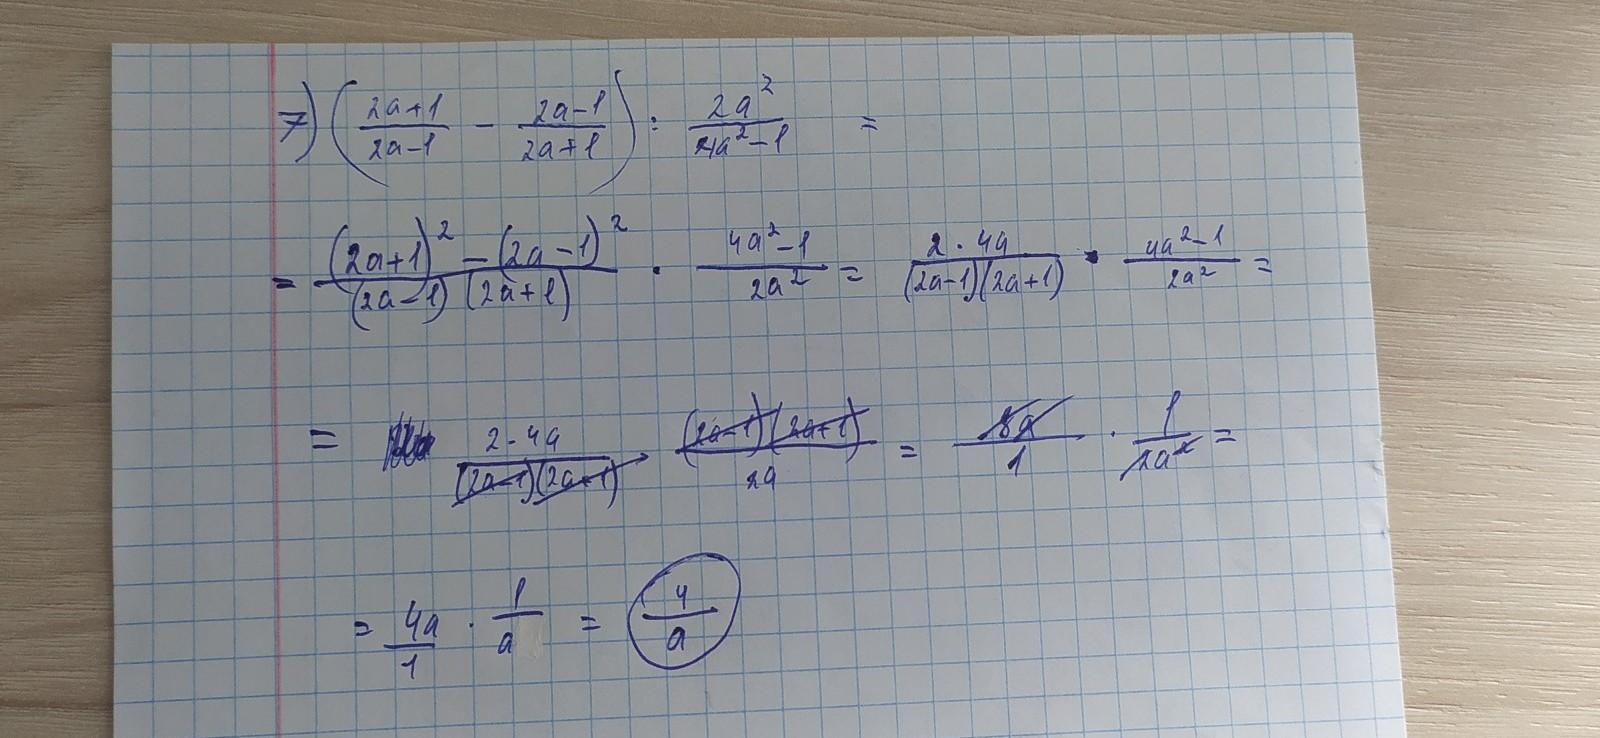 7) ( (2a+1)/(2a-1) - (2a-1)/(2a+1) ) : 2a²/(4a²-1) =
= ((2a+1)² - (2a-1)²)/((2a-1)(2a+1)) · (4a²-1)/2a² = 2·4a/((2a-1)(2a+1)) · (4a²-1)/2a² =
= 2·4a/((2a-1)(2a+1)) · (2a-1)(2a+1)/2a = 8a/1 · 1/2a² =
= 4a/1 · 1/a = 4/a